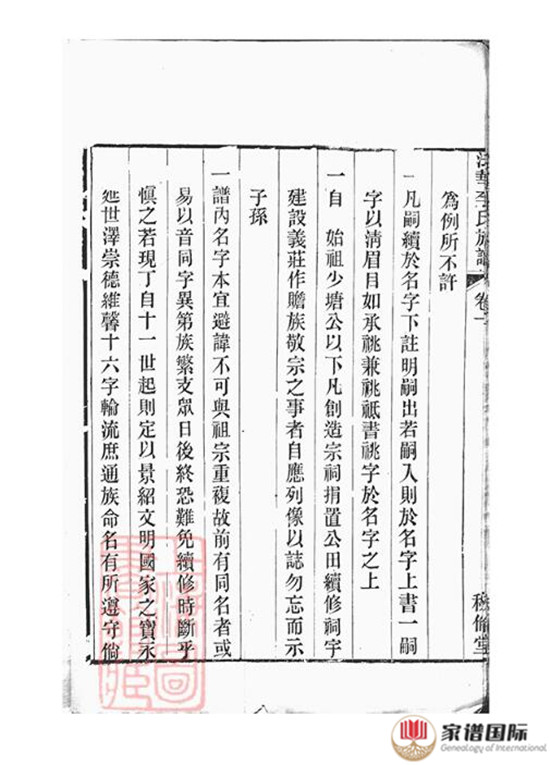 李氏族譜
卷一
為例所不許
一凡嗣續於名字下註明嗣出若嗣入則於名字上書一嗣
字以清眉目如承祧兼祧祗書祧字於名字之上
一自 始祖少塘公以下凡創造宗祠捐置公田續修祠宇
建設義莊作贍族敬宗之事者自應列像以誌勿忘而示
子孫
一譜內名字本宜避諱不可與祖宗重複故前有同名者或
易以音同字異第族繁支眾日後終恐難免續修時斷乎
慎之若現丁自十一世起則定以景紹文明國家之寶永
延世澤崇德維馨十六字輪流庶通族命名有所遵守倘
倫堂
八
家谱国际
Genealogy of International